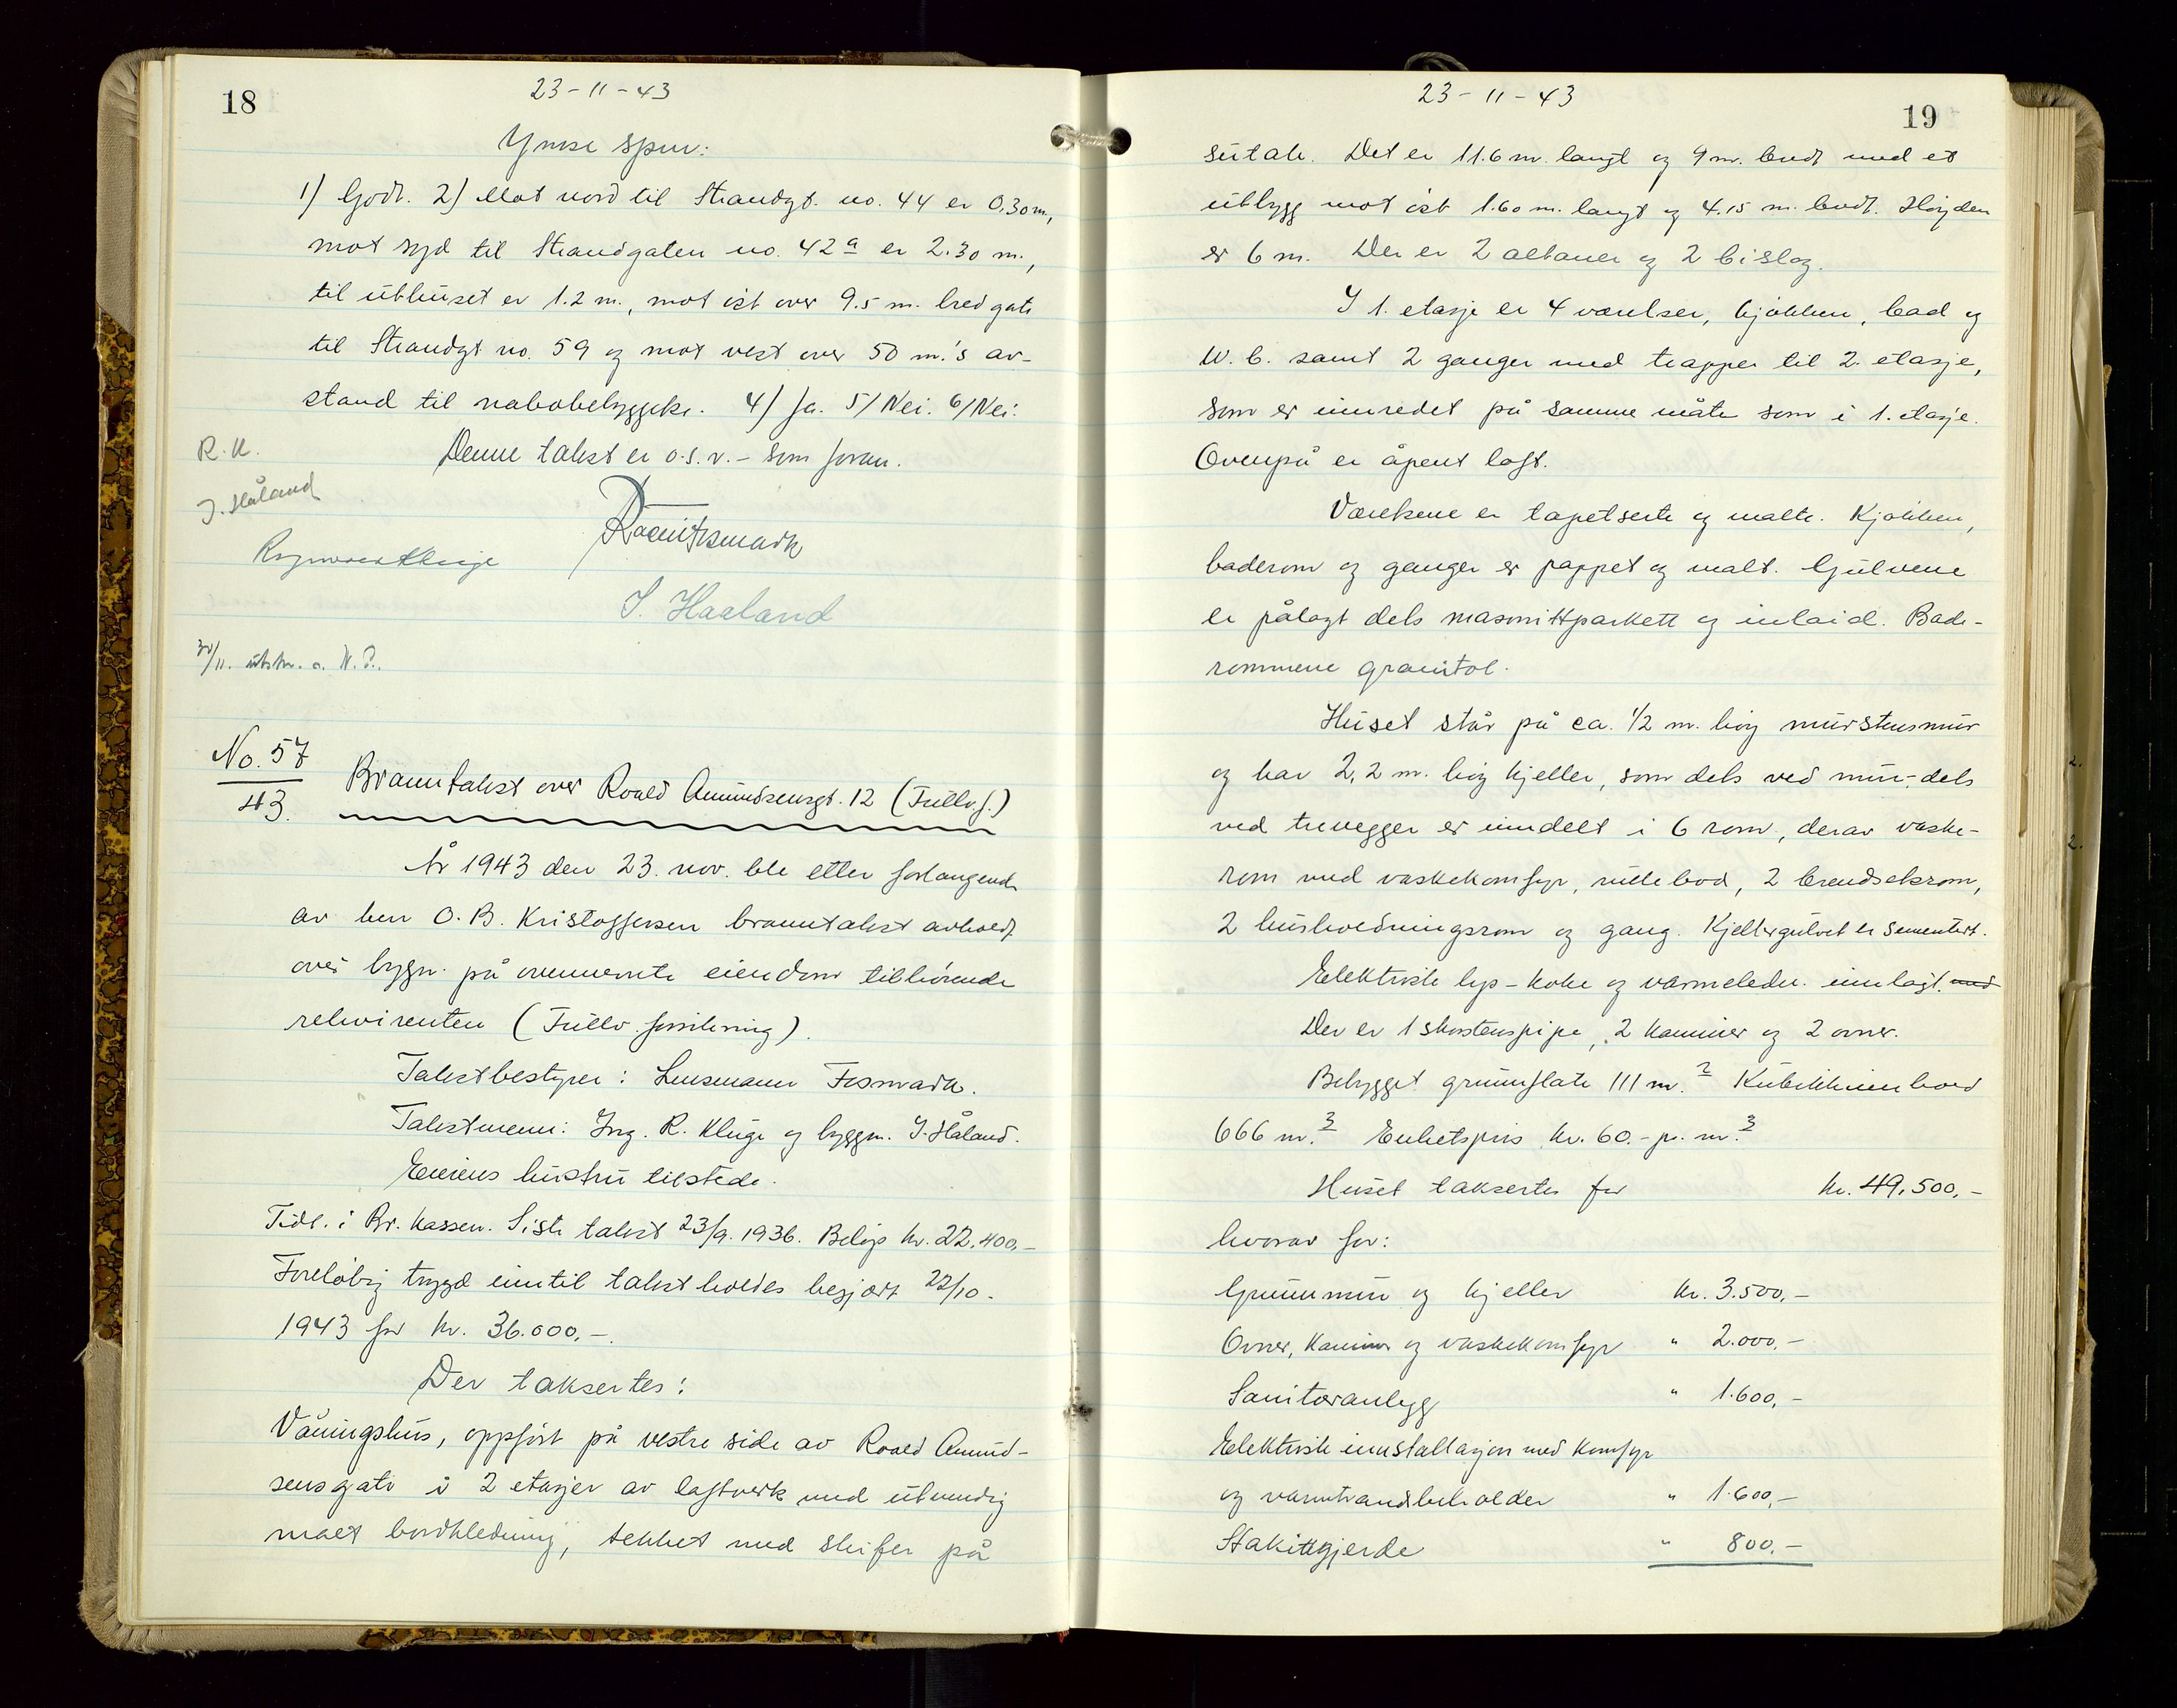 18
23-11-43
Ymse spm:
1) Godt. 2) Mot nord til Strandgt. no. 44 er 0,30 m.,
mot syd til Strandgaten no. 42a er 2.30 m.,
til uthuset er 1.2 m., mot øst over 9.5 m. bred gate
til Strandgt no. 59 og mot vest over 50 m.'s av-
stand til nabobebyggelse. 4/ Ja. 5/ Nei. 6/ Nei.
R. K.
Denne takst er o.s.v. - som foran.
J. Håland
Ragnvald Kluge
Fismark
J. Haaland
30/11. utskr. a. N. P.
No. 57
43.
Branntakst over Roald Amundsensgt. 12 (Fullv.f.)
År 1943 den 23. nov. ble etter forlangende
av herr O. B. Kristoffersen branntakst avholdt
over bygn. på ovennevnte eiendom tilhørende
rekvirenten (Fullv. forsikring).
Takstbestyrer: Lensmann Fismark.
Takstmenn: Ing. R. Kluge og byggm. J. Håland.
Eierens hustru tilstede.
Tidl. i Br. kassen. Siste takst 23/9. 1936. Beløp kr. 22.400,-
Foreløbig trygd inntil takst holdes begjært 22/10.
1943 for kr. 36.000,-.
Der taksertes:
Våningshus, oppført på vestre side av Roald Amund-
sensgate i 2 etasjer av laftverk med utvendig
malt bordkledning, tekket med skifer på
19
23-11-43
sutak. Det er 11.6 m. langt og 9 m. bredt med et
utbygg mot øst 1.60 m. langt og 4.15 m. bredt. Høyden
er 6 m. Der er 2 altaner og 2 bislag.
I 1. etasje er 4 værelser, kjøkken, bad og
W. C. samt 2 ganger med trapper til 2. etasje,
som er innredet på samme måte som i 1. etasje.
Ovenpå er åpent loft.
Værelsene er tapetserte og malte. Kjøkken,
baderom og ganger er pappet og malt. Gulvene
er pålagt dels masonittparkett og inlaid. Bade-
rommene granitol.
Huset står på ca. 1/2 m. høy murstensmur
og har 2,2 m. høy kjeller, som dels ved mur-, dels
ved trevegger er inndelt i 6 rom, derav vaske-
rom med vaskekomfyr, rullebod, 2 brendselsrom,
2 husholdningsrom og gang. Kjellergulvet er sementert.
Elektrisk lys- koke og varmeledn. innlagt. med
Der er 1 skorstenspipe, 2 kaminer og 2 ovner.
Bebygget grunnflate 111 m.2 Kubikkinnhold
666 m.3 Enhetspris kr. 60.- pr. m.3
Huset taksertes for kr. 49,500,-
hvorav for:
Grunnmur og kjeller kr. 3.500,-
Ovner, kaminer og vaskekomfyr " 2.000,-
Sanitæranlegg " 1.600,-
Elektrisk innstallasjon med komfyr
og varmtvandsbeholder " 1.600,-
Stakittgjerde " 800.-